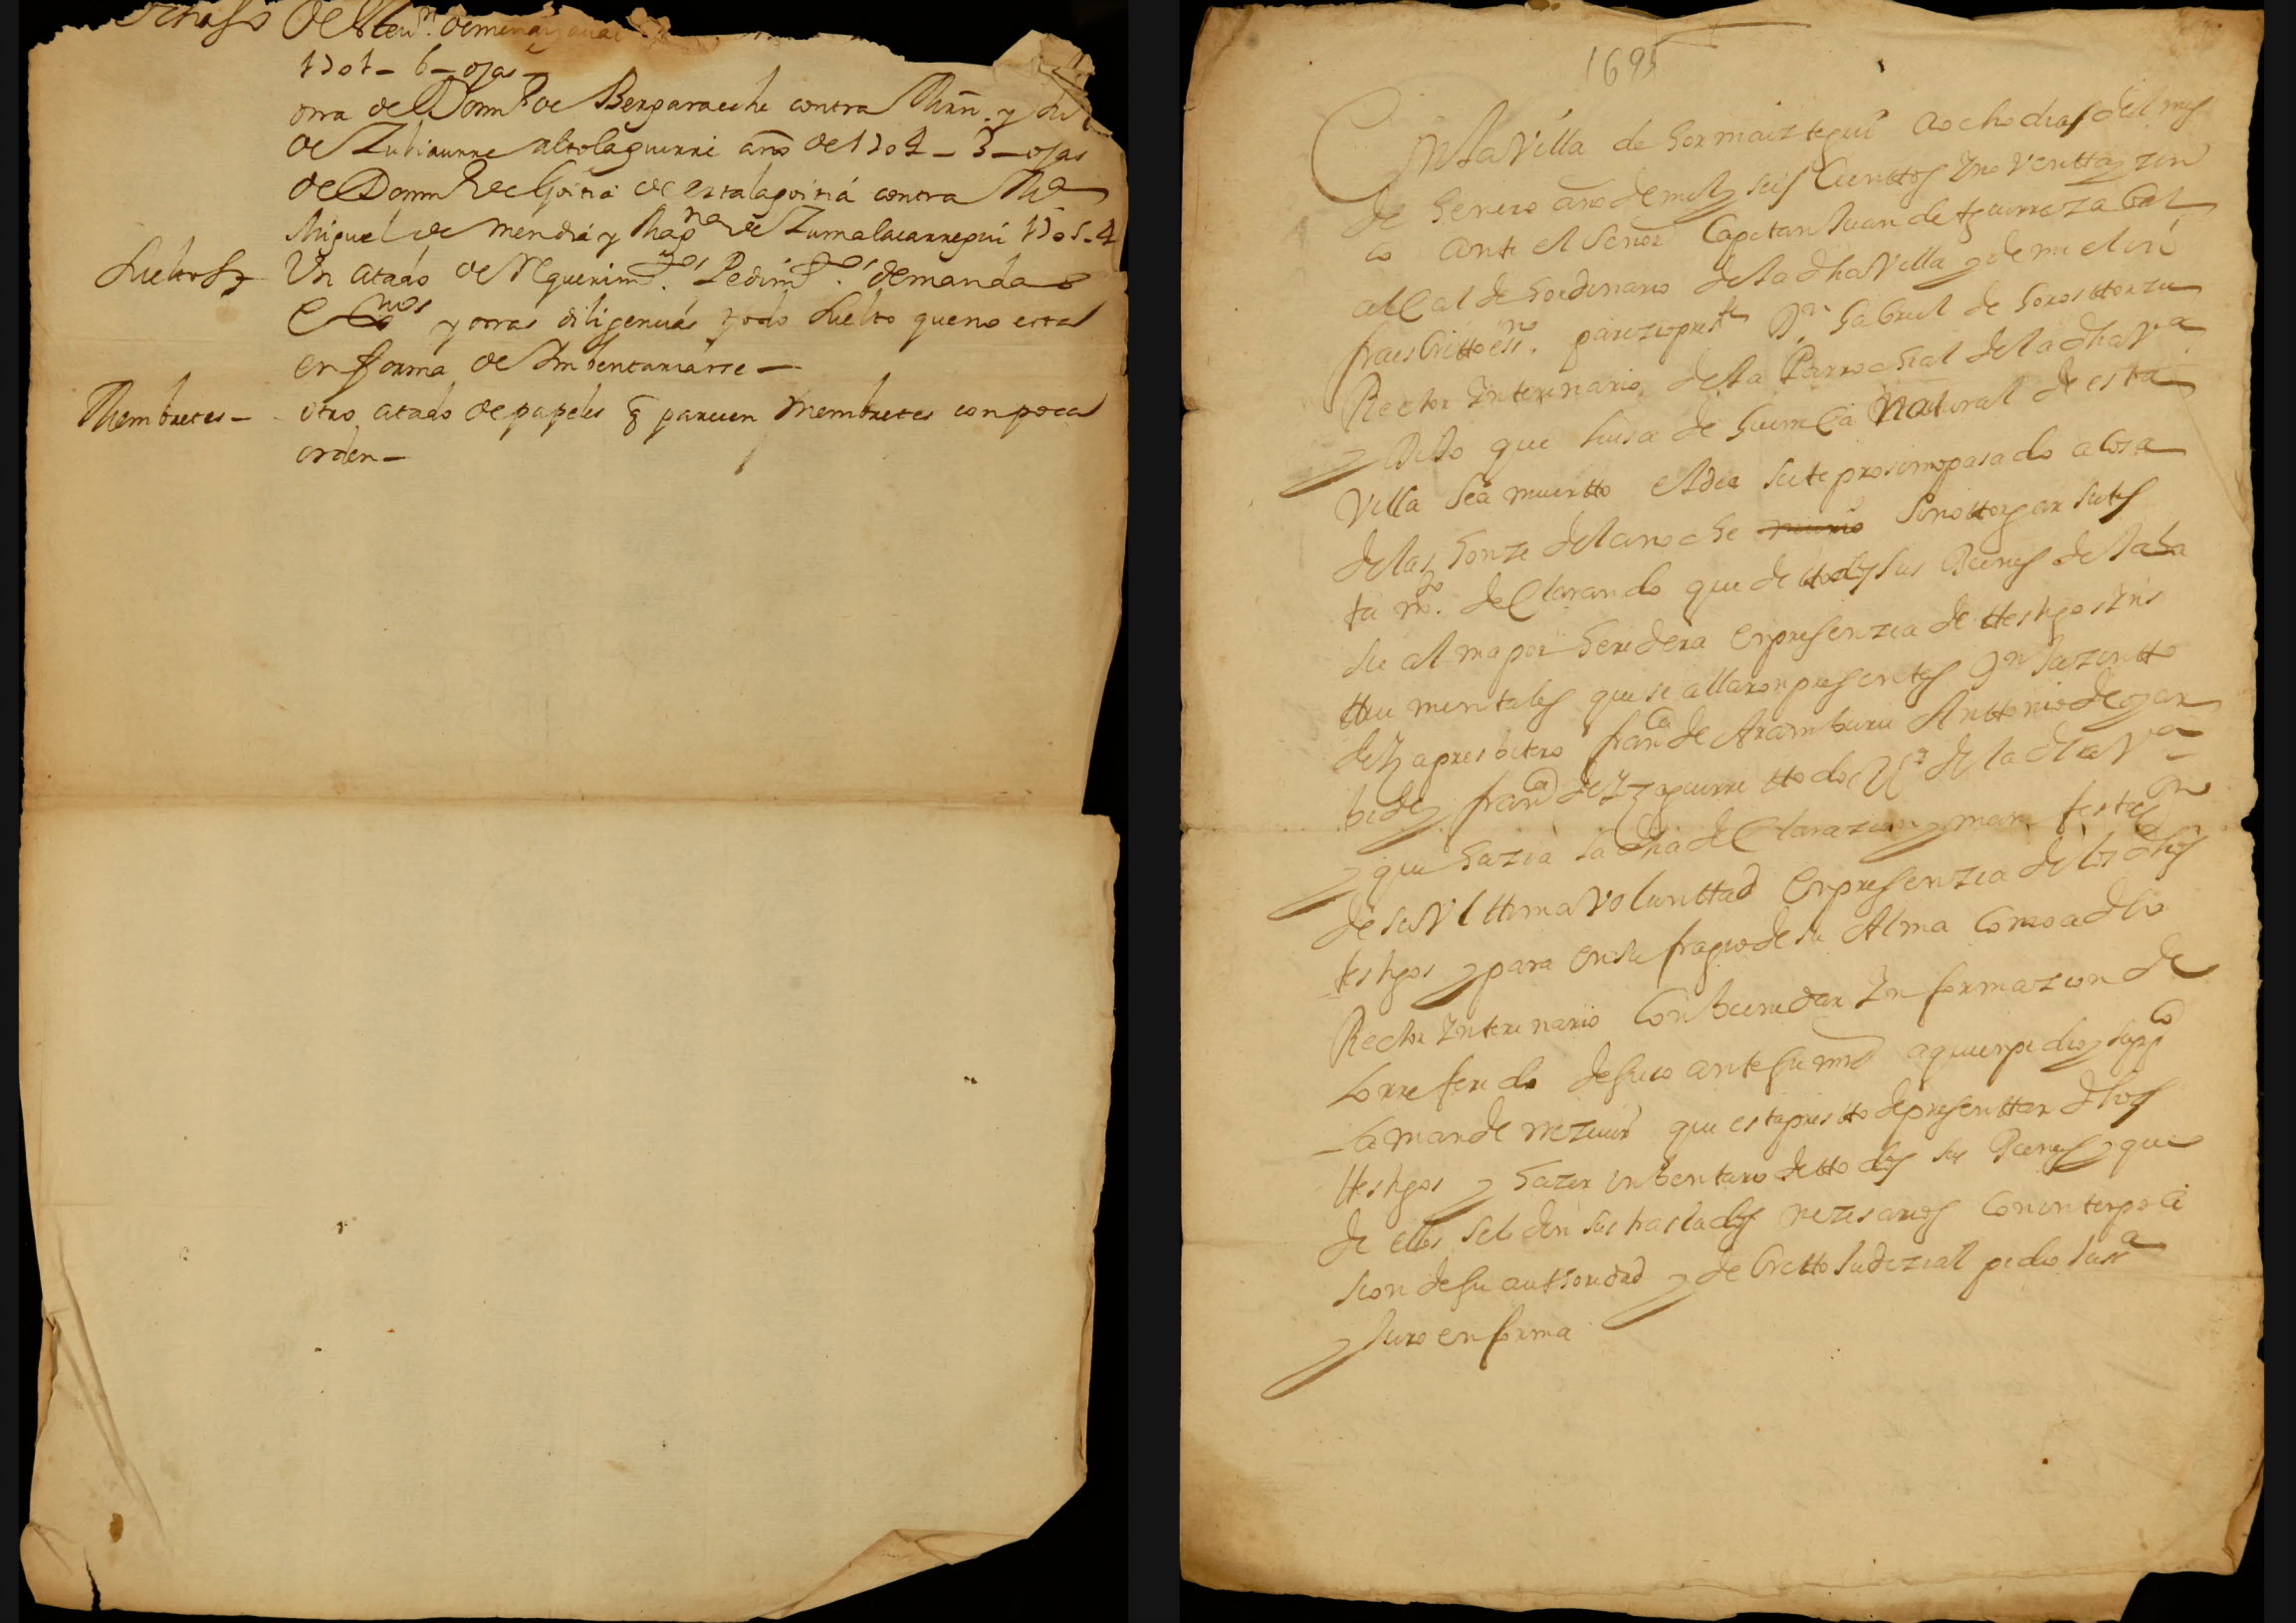 de mendizaual
1701 - 6 - ojas
otra de Domin.º de Bengaraeche contra Mrñ. y
de Zubiaurre altolaguirre año de 1704 - 3 - ojas
de Domin.º de Goitia de ertalagoitia contra
Miguel de mendia y Map.na de Zumalacarregui 1705 - 4
Sueltos Un atado de Requerim.tos Pedim.tos demandas
y otras diligencias y todo suelto que no esta
en forma de Imbentariarse -
Membretes - otro atado de papeles q parecen membretes con poca
orden -
1695
En la Villa de hormaiztegui a ocho dias del mes
de henero año de mil y seis Cienttos y no ventta y zin
co ante el señor Capitan Juan de yguerrazabal
alcalde hordinario de la dha Villa y de mi el in
fraescritto essno. parezio presste Dn. Gabriel de horosttorzu
Rector Interinario de la Parrochial de la dha Va
y Dijo que luisa de Guerra natural de esta
Villa sea muertto el dia siete prosimo pasado a losa
delas honze dela noche sin ottorgar sutes
ta mto. declarando que de ttodos sus Bienes dejaba
su alma por heredera en presenzia de ttestigos Ins
ttru mentales que se allaron presentes Dn Jazintto
de Yza presbitero franco de Aramburu Anttonio de gar
bide y franco de Yzaguirre ttodos Vos de la dha Va
y que hazia la dha declarazion y mani festazon
de su Vlttima Volunttad en presenzia de los dhos
testigos y para en su fragio de su Alma Como a dho
Rector Interinario Conbiene dar Informazion de
lo rre ferido de suso ante su md a quien pidio y suppco
la mande rrezivir que esta presstto de presenttar dhos
ttestigos y hazer inbentario de ttodos sus Bienes y que
de ellos se le den sus traslados nezesarios Con interpoci
sion de su authoridad y decretto Judizial pidio Justa
y Juro en forma